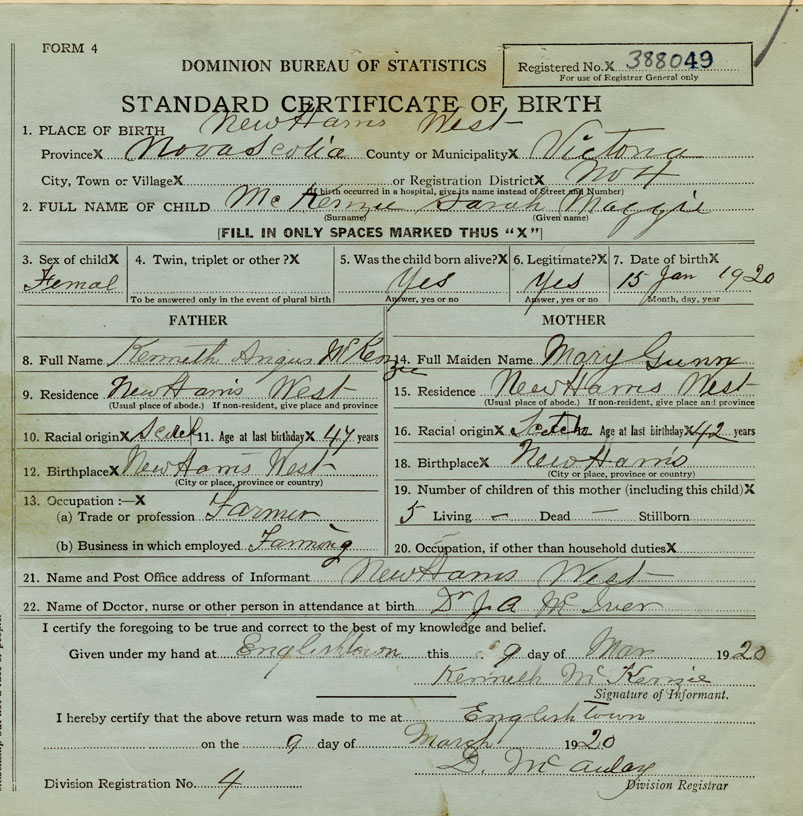 FORM 4
DOMINION BUREAU OF STATISTICS
Registered No. X 388049
For use of Registrar General only
STANDARD CERTIFICATE OF BIRTH
1. PLACE OF BIRTH New Harris West
Province X Nova Scotia County or Municipality X Victoria
City, Town or Village X or Registration District X No 4
(If birth occurred in a hospital, give its name instead of Street and Number)
2. FULL NAME OF CHILD McKenzie Sarah Maggie
(Surname) (Given name)
[FILL IN ONLY SPACES MARKED THUS "X"]
3. Sex of child X 4. Twin, triplet or other ? X 5. Was the child born alive? X 6. Legitimate? X 7. Date of birth X
Femal Yes Yes 15 Jan 1920
To be answered only in the event of plural birth Answer, yes or no Answer, yes or no Month, day, year
FATHER MOTHER
8. Full Name Kenneth Angus McKenzie 14. Full Maiden Name Mary Gunn
9. Residence New Harris West 15. Residence New Harris West
(Usual place of abode.) If non-resident, give place and province (Usual place of abode.) If non-resident, give place and province
10. Racial origin X 11. Age at last birthday X 47 years 16. Racial origin X Scotch Age at last birthday X 42 years
12. Birthplace X New Harris West 18. Birthplace X New Harris
(City or place, province or country) (City or place, province or country)
13. Occupation :—X 19. Number of children of this mother (including this child) X
(a) Trade or profession Farmer 5 Living – Dead — Stillborn
(b) Business in which employed Farming 20. Occupation, if other than household duties X
21. Name and Post Office address of Informant New Harris West
22. Name of Doctor, nurse or other person in attendance at birth Dr J A McIver
I certify the foregoing to be true and correct to the best of my knowledge and belief.
Given under my hand at Englishtown this 9 day of Mar 1920
Kenneth McKenzie
Signature of Informant.
I hereby certify that the above return was made to me at Englishtown
on the 9 day of March 1920
D. McAulay
Division Registration No. 4 Division Registrar